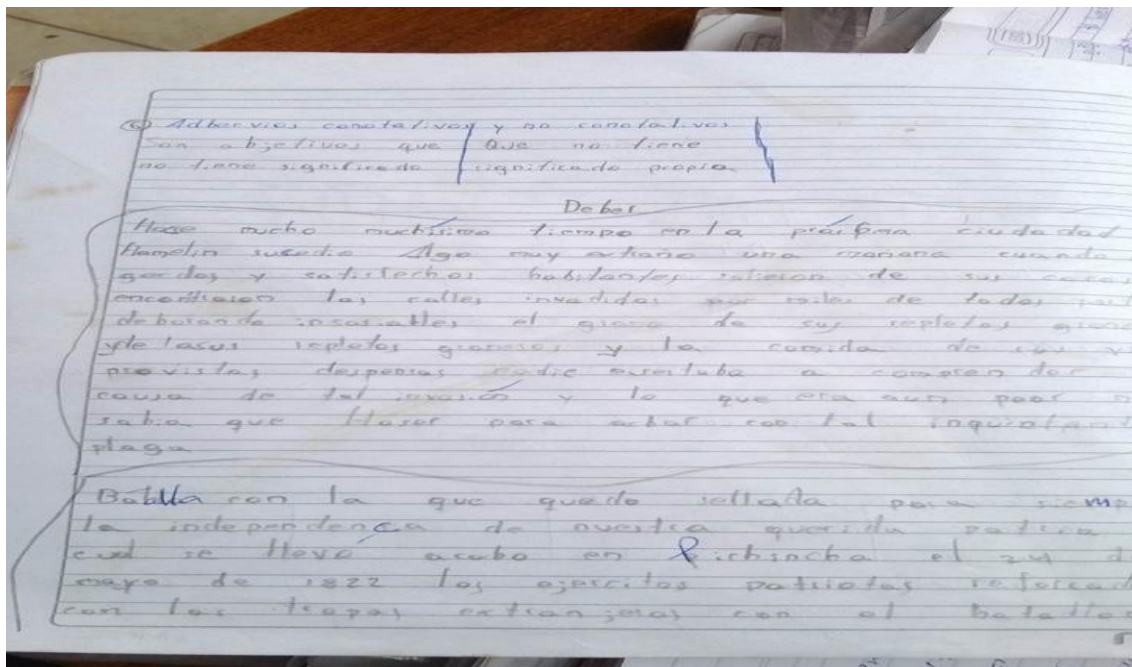 ⑥ Adbervios conotativos y no conotativos
Son objetivos que Que no tiene
no tiene significado significado propio
Deber
Hace mucho muchísimo tiempo en la ciudadad
Hamelin sucedio Algo muy una mañana cuando
gordos y satisfechos habitantes salieron de sus casas
las calles invadidas por miles de todas
deborando insasiables el grano de sus repletos
repletos y la comida de sus
provistas despensas nadie a compren der
causa de tal invasión y lo que era aun peor
sabia que Haser para acbar con tal
plaga
Batlla con la que quedo sellada para
la independenca de nuestra querida patria
cual se llevó acabo en Pichincha el 24
mayo de 1822 los ejercitos patriotas
con las tropas extranjeras con el